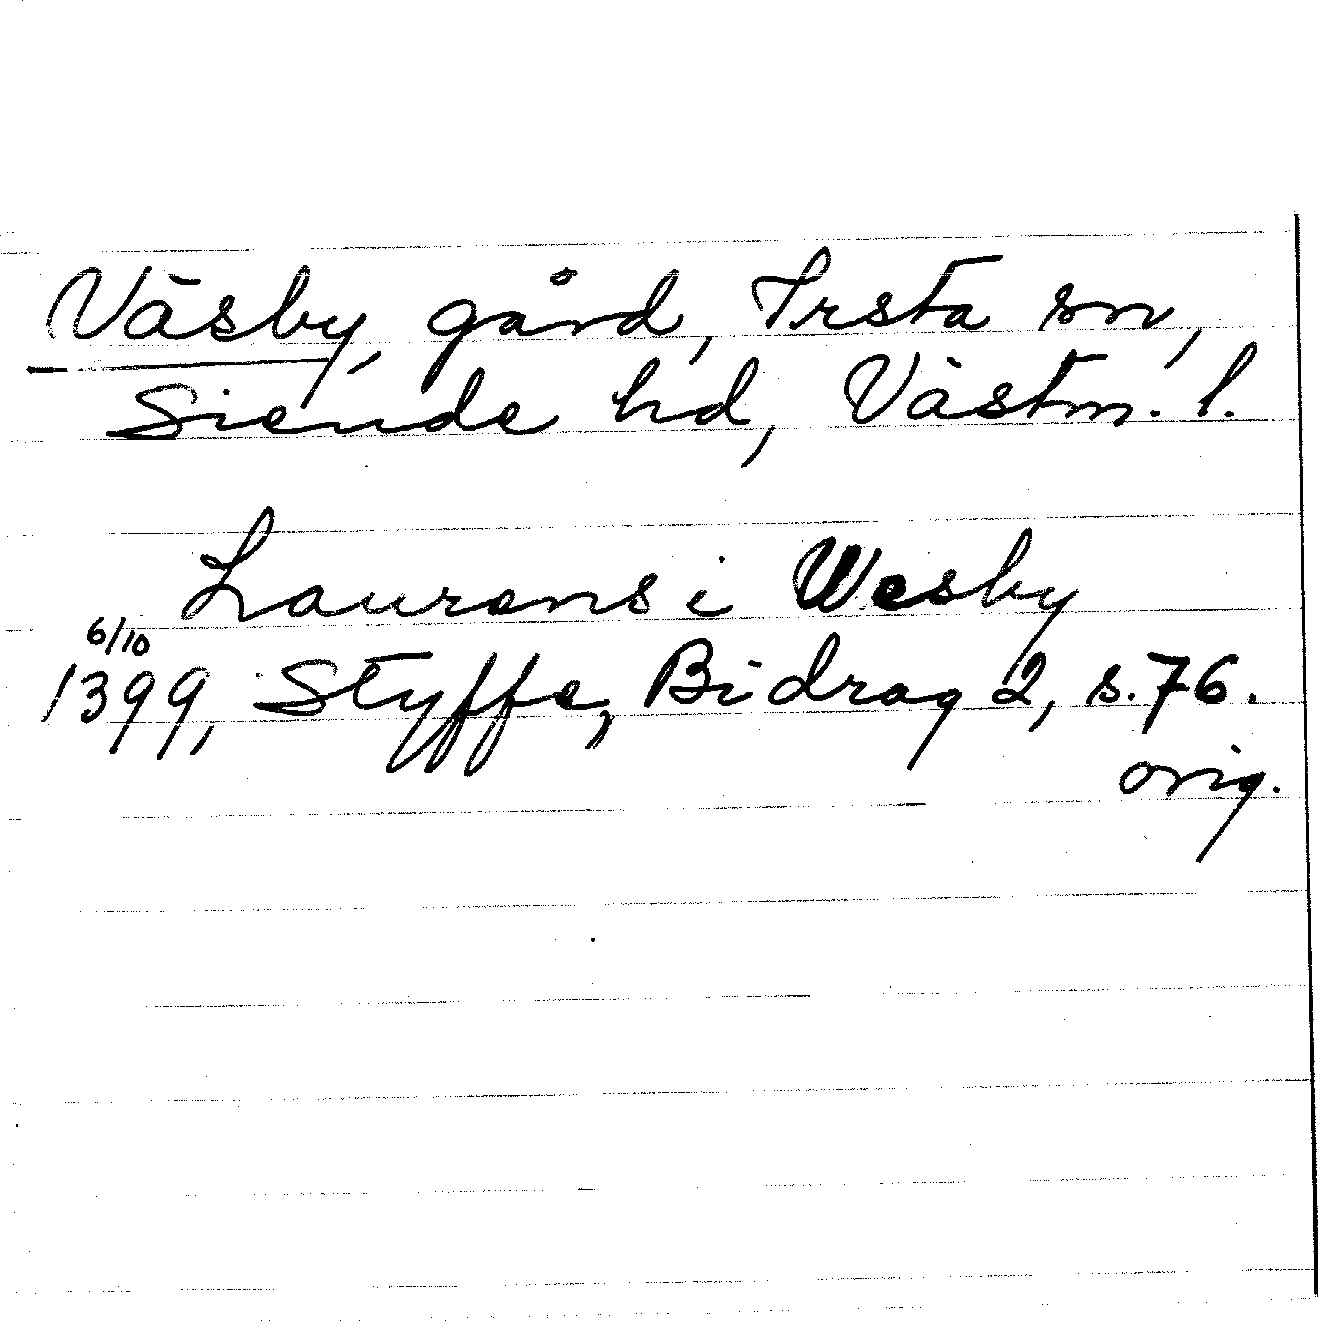 Väsby, gård, Irsta sn,
Siende hd, Västm. l.
Laurens i Wesby
6/10
1399, Styffe, Bidrag 2, s. 76.
orig.